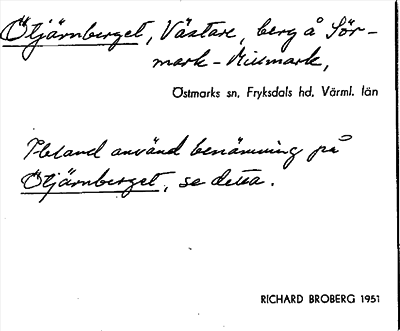 Ötjärnberget, Västare, berg å Sör-
mark-Millmark,
Östmarks sn, Fryksdals hd, Värml. län
Ibland använd benämning på
Ötjärnberget, se detta.
RICHARD BROBERG 1951